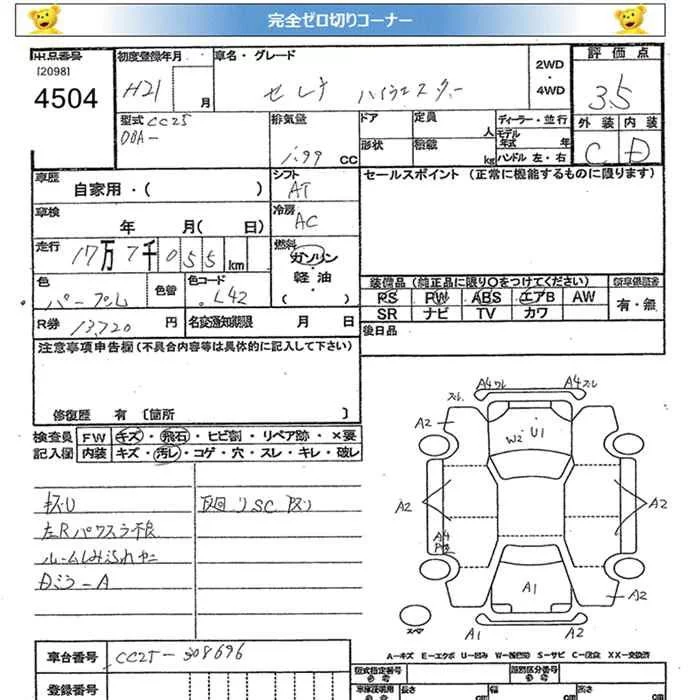 完全ゼロ切りコーナー
出品番号 初度登録年月 車名・グレード 2WD・4WD 評価点
[2098]
4504 H21 月 セレナ ハイウェスター 3.5
外装 内装
C D
型式 CC25 排気量 ドア 定員 ディーラー・並行
DBA- 人 モデル年式 年
1.99 CC 形状 積載 kg ハンドル 左・右
車歴 シフト セールスポイント (正常に機能するものに限ります)
自家用・( ) AT
車検 冷房
年 月( 日) AC
走行 燃料
17万7千055km ガソリン・軽油
( )
装備品 (純正品に限り○をつけてください) 新車保証書
色 色替 色コード PS PW ABS エアB AW 有・無
パープル L42 SR ナビ TV カワ
R券 13,720円 名変通知期限 月 日 後日品
注意事項申告欄 (不具合内容等は具体的に記入して下さい)
修復歴 有 〔箇所 〕
検査員 FW キズ・飛石・ヒビ割・リペア跡・×要
記入欄 内装 キズ・汚レ・コゲ・穴・スレ・キレ・破レ
左Rパワスラ不良
A4 A4スレ
A2 W2 U1 A2
A2 A2
A4
A1 A2
スペア A1 A2
A-キズ E-エクボ U-凹み W-補修跡 S-サビ C-腐食 XX-交換済
車台番号 CC25-308696
登録番号
型式指定番号 類別区分番号
長さ cm 幅 cm 高さ cm